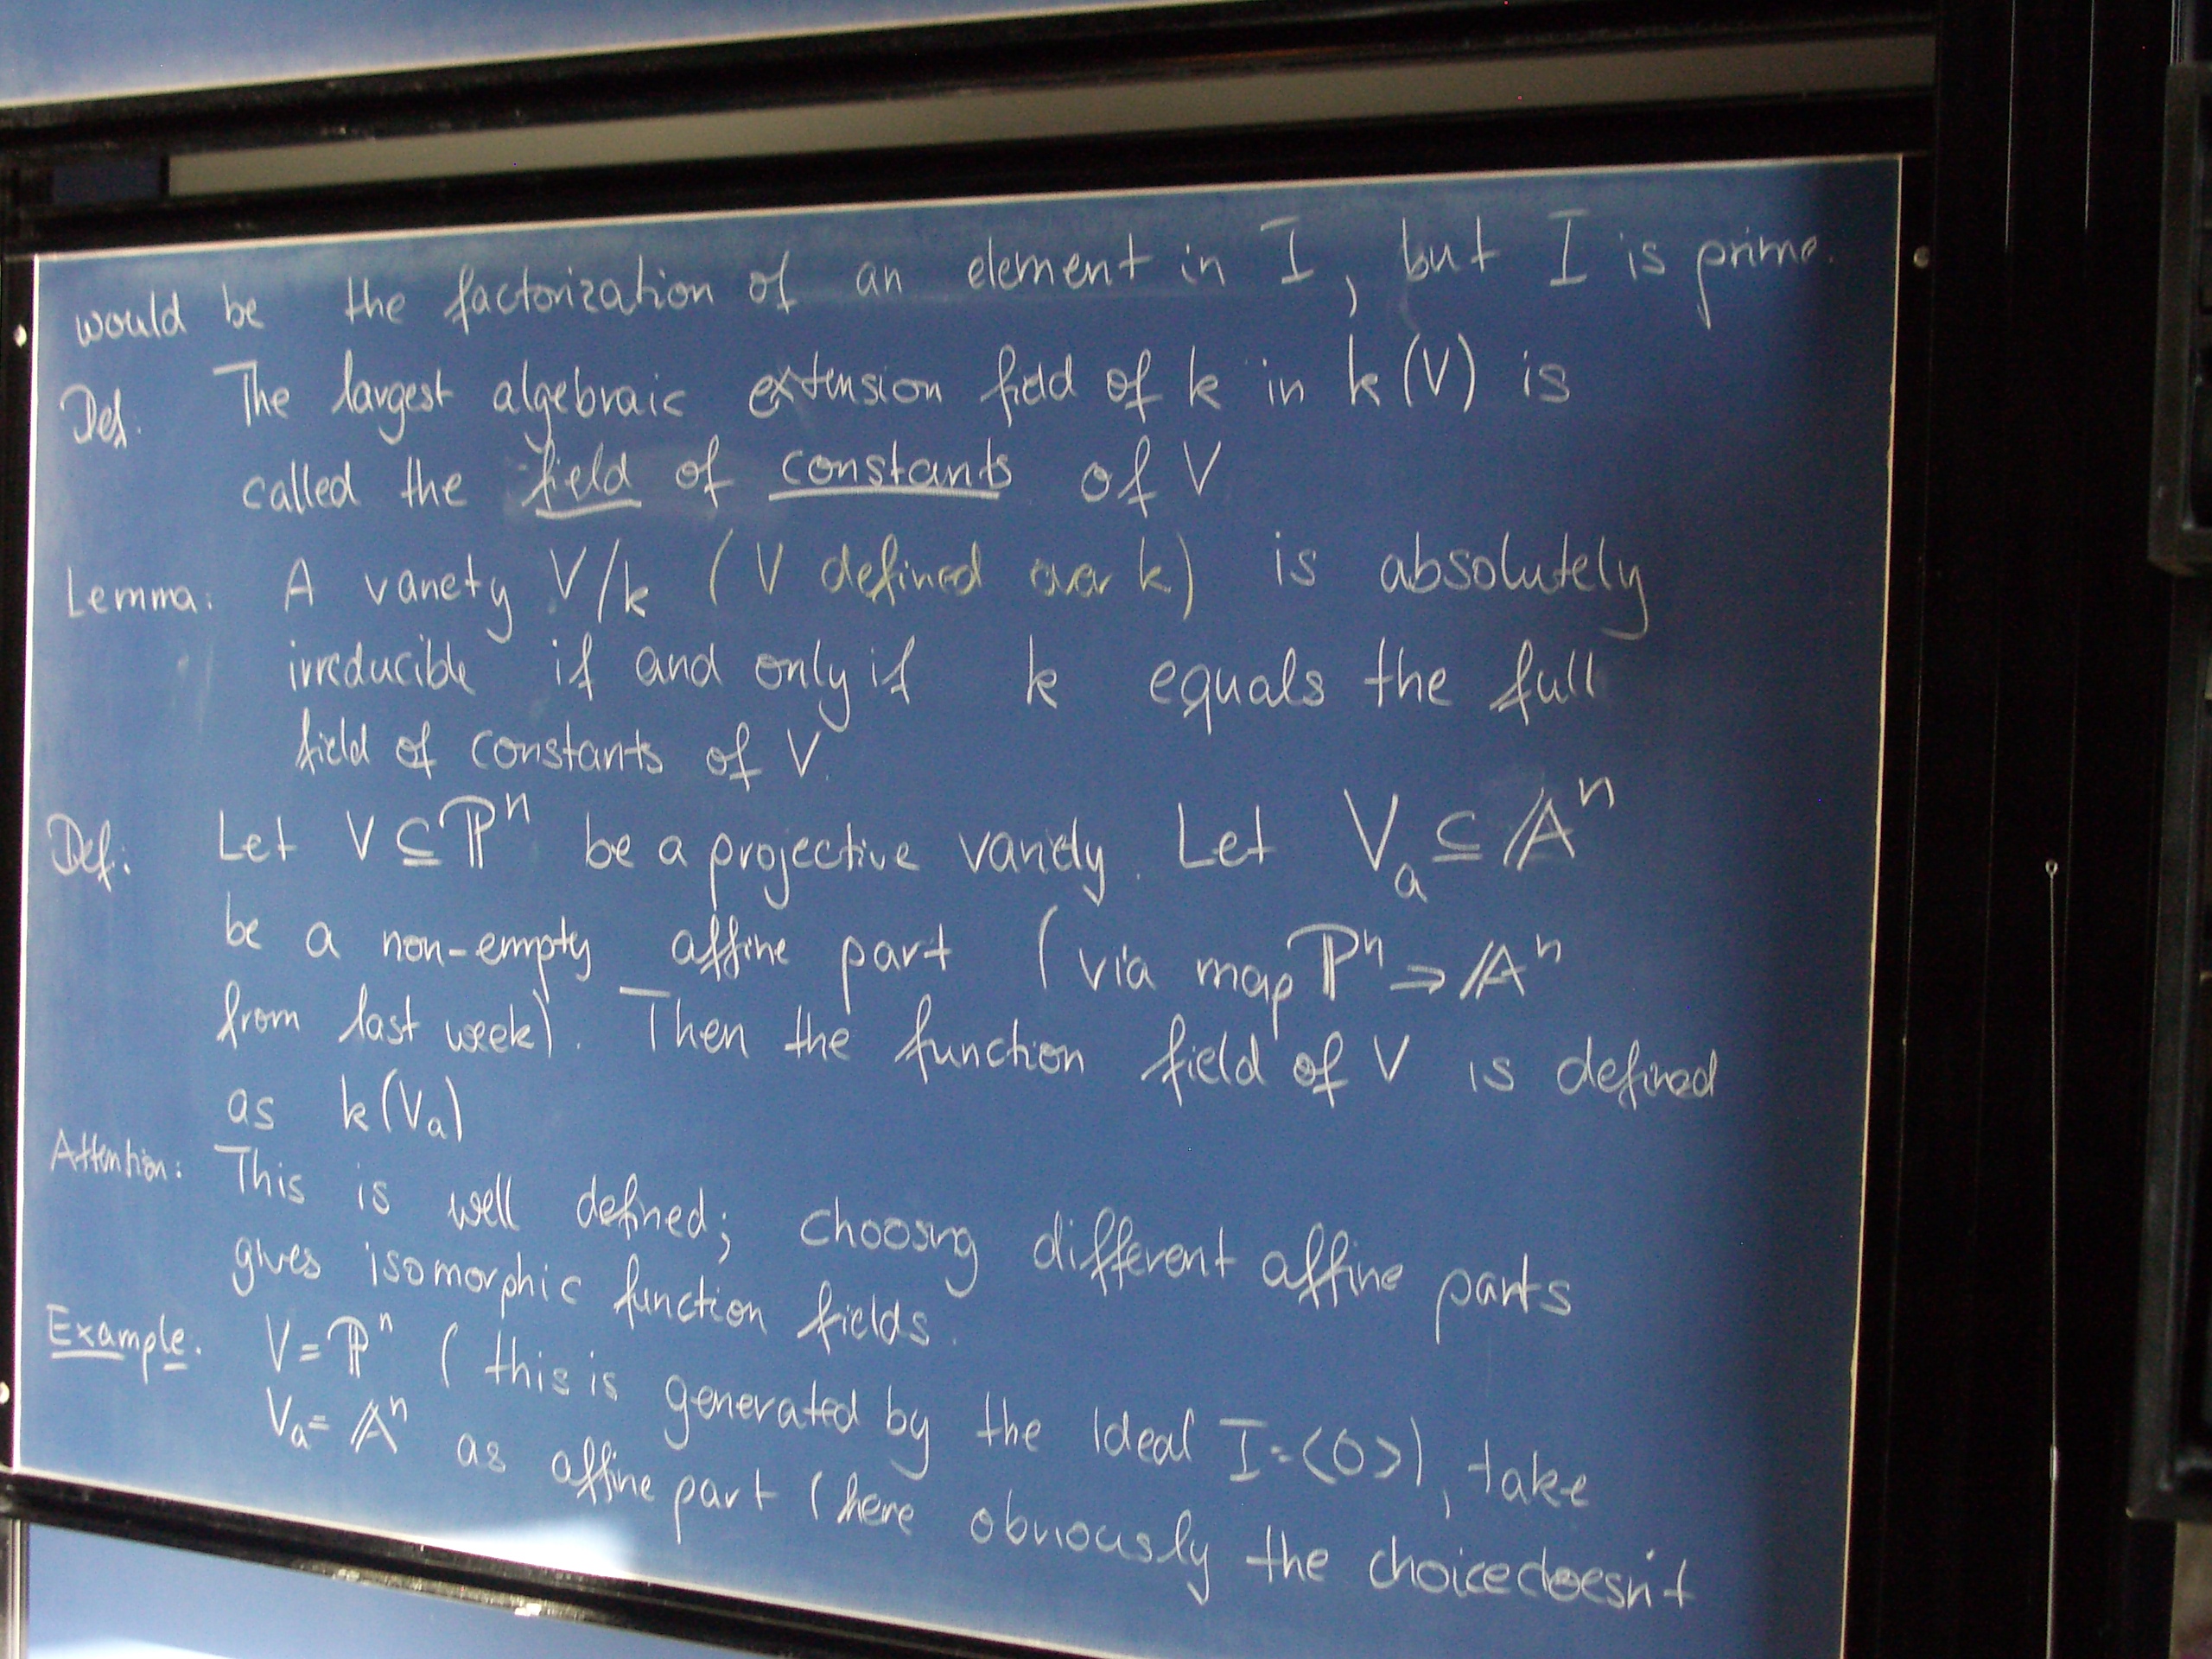 would be the factorization of an element in I, but I is prime.
Def. The largest algebraic extension field of k in k(V) is
called the field of constants of V
Lemma: A variety V/k (V defined over k) is absolutely
irreducible if and only if k equals the full
field of constants of V.
Def: Let V ⊆ ℙⁿ be a projective variety. Let Vₐ ⊆ 𝔸ⁿ
be a non-empty affine part (via map ℙⁿ → 𝔸ⁿ
from last week). Then the function field of V is defined
as k(Vₐ)
Attention: This is well defined; choosing different affine parts
gives isomorphic function fields.
Example. V = ℙⁿ (this is generated by the ideal I = <0>), take
Vₐ = 𝔸ⁿ as affine part (here obviously the choice doesn't